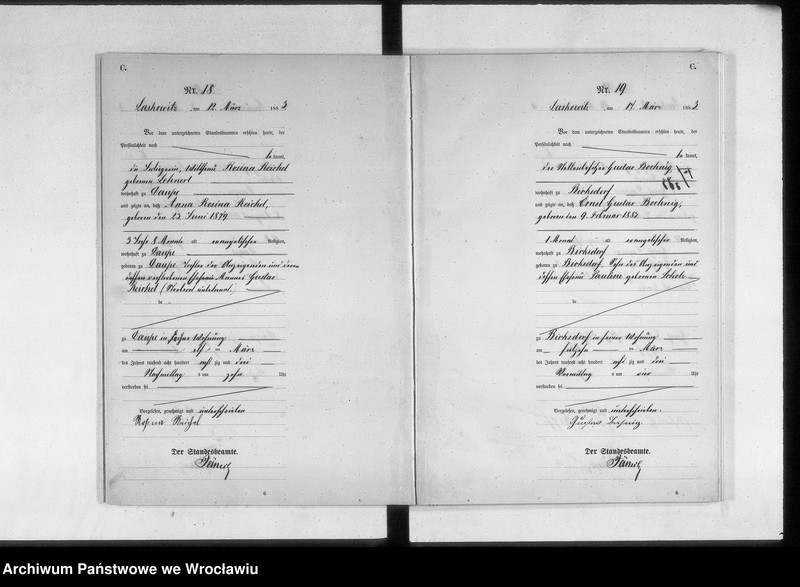 C.
Nr. 18
Laskowitz, am 12. März 1883
Vor dem unterzeichneten Standesbeamten erschien heute, der
Persönlichkeit nach
be kannt,
die Wittfrau Rosina Reichel
geborene Lehnert
wohnhaft zu Daupe
und zeigte an, daß Anna Rosina Reichel,
geboren den 23. Juni 1879
3 Jahr 8 Monate alt evangelischer Religion,
wohnhaft zu Daupe
geboren zu Daupe, Tochter der Anzeigenden und deren
verstorbenen Ehemanns Gustav
Reichel
zu Daupe in ihrer Wohnung
am elf ten März
des Jahres tausend acht hundert acht zig und drei
Nachmittag s um zehn Uhr
verstorben sei
Vorgelesen, genehmigt und unterschrieben
Rosina Reichel
Der Standesbeamte.
C.
Nr. 19
Laskowitz, am 17. März 1883
Vor dem unterzeichneten Standesbeamten erschien heute, der
Persönlichkeit nach
be kannt,
der Stellenbesitzer Gustav
wohnhaft zu Birksdorf
und zeigte an, daß Ernst Gustav
geboren den 9. Februar 1883
1 Monat alt evangelischer Religion,
wohnhaft zu Birksdorf
geboren zu Birksdorf, Sohn des Anzeigenden und
dessen Ehefrau Pauline geborenen Scholz
zu Birksdorf in seiner Wohnung
am ten März
des Jahres tausend acht hundert acht zig und drei
Vormittag s um vier Uhr
verstorben sei
Vorgelesen, genehmigt und unterschrieben.
Gustav
Der Standesbeamte.
Archiwum Państwowe we Wrocławiu